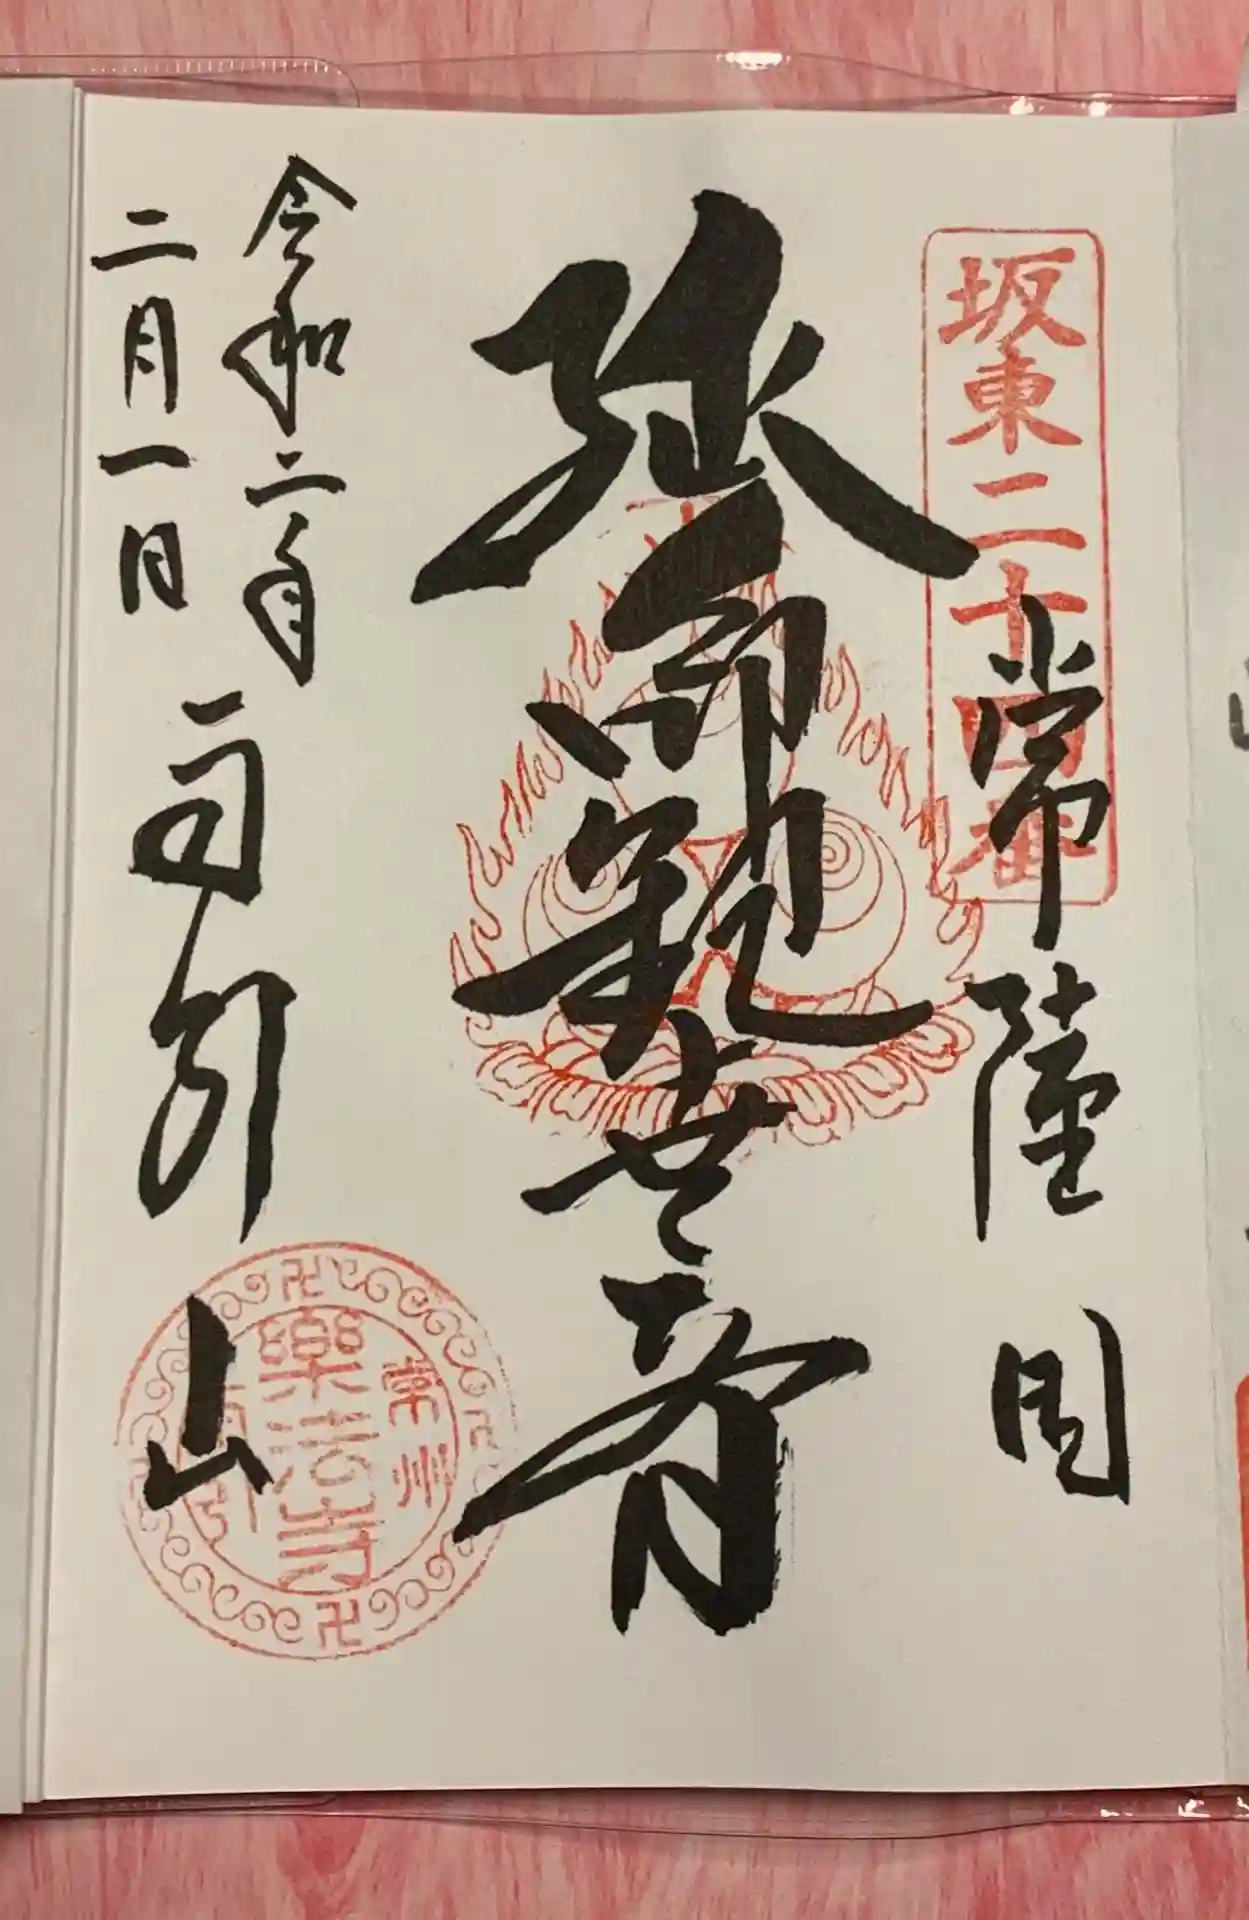 坂東二十四番
常陸国
延命観世音
令和二年
二月一日
雨引山
常州
樂法寺
雨引